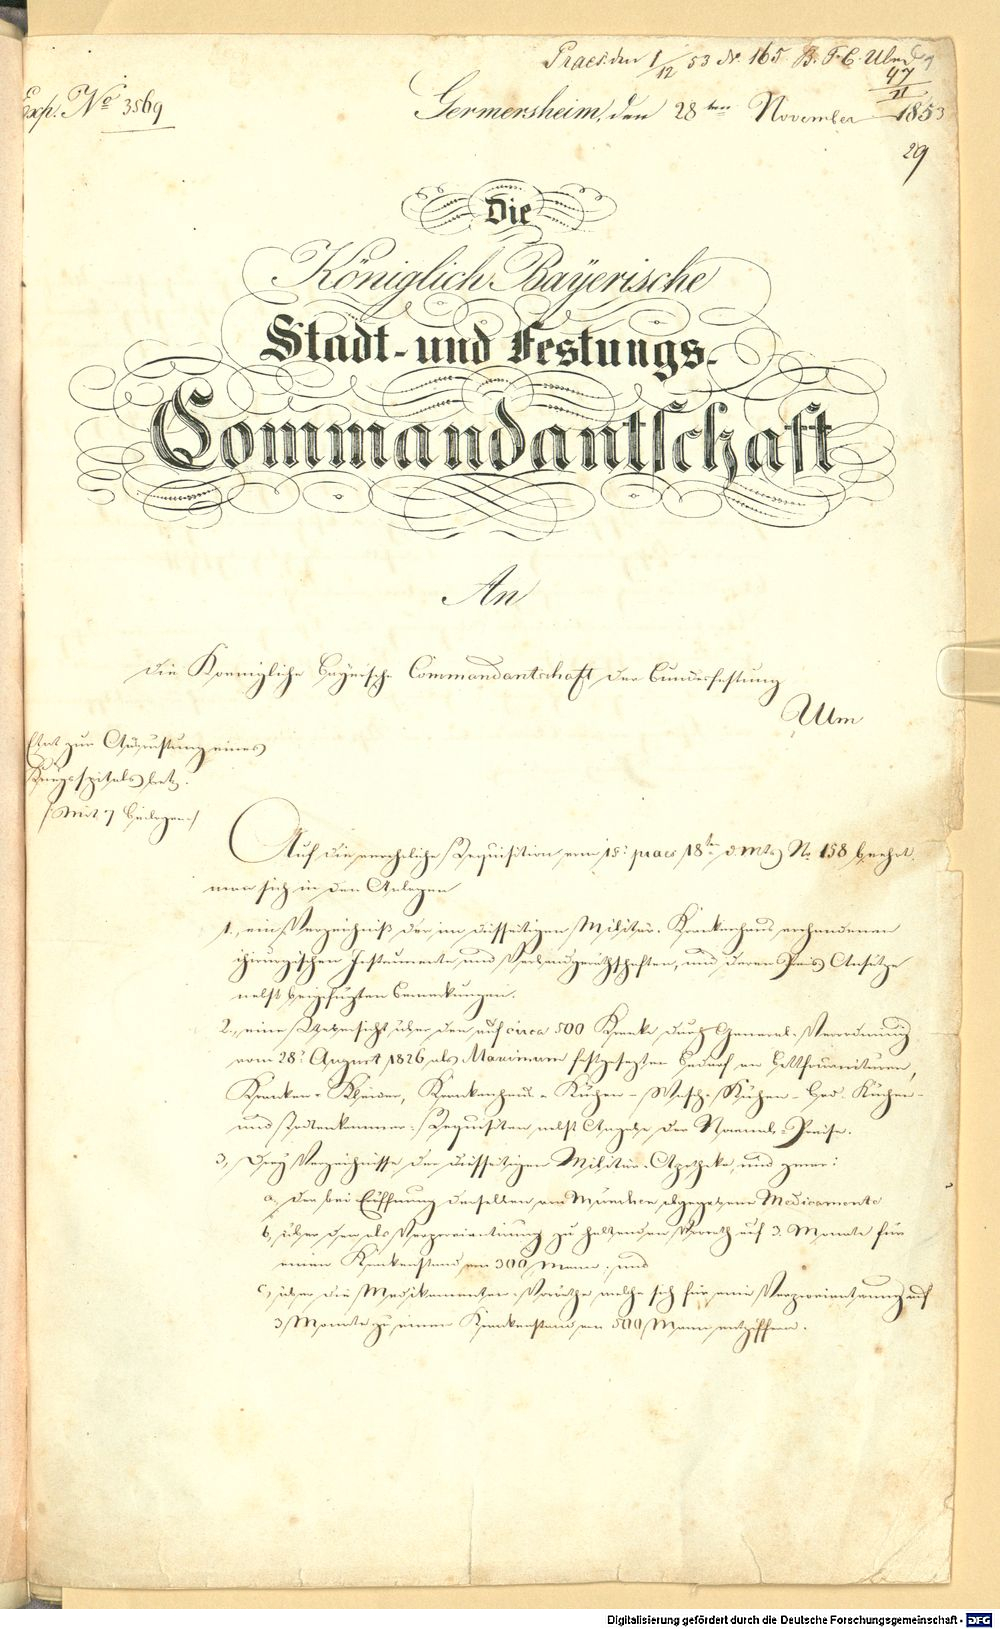 Praes. den 1/12 53 Nr. 165 B. F. C. Ulm
47
11
Exp. No 3569
Germersheim, den 28ten November 1853
29
Die
Königlich Bayerische
Stadt- und Festungs-
Commandantschaft
An
die Koenigliche Bayerische Commandantschaft der Bundesfestung
Ulm
Etat zur Ausrüstung eines
Kriegsspitals betr.
/: Mit 7 Beilagen :/
Auf die verehrliche Requisition vom 15. praes 18ten d. Mts No 158 beehrt
man sich in den Anlagen
1., ein Verzeichniß der im diesseitigen Militär-Krankenhaus vorhandenen
chirurgischen Instrumente und Verbandgeräthschaften, und deren Preis Ansätze
nebst beigefügten Bemerkungen.
2., eine Uebersicht über den auf circa 500 Kranke durch General-Verordnung
vom 28. August 1826 als Maximum festgesezten Bedarf an Bettfournituren,
Kranken-Kleider, Krankenhaus-Küchen- Wasch-Küchen- Bad-Küchen-
und Todtenkammer-Requisiten nebst Angabe der Normal-Preise.
3, Drey Verzeichnisse der diesseitigen Militär-Apotheke, und zwar:
a, der bei Eröffnung derselben von München abgegebene Medicamente
b, über den als Verproviantirung zu haltenden Vorrath auf 3 Monate für
einen Krankenstand von 300 Mann, und
c, über die Medikamenten-Vorräthe welche sich für eine Verproviantirung auf
3 Monate zu einem Krankenstand von 500 Mann entziffern.
Digitalisierung gefördert durch die Deutsche Forschungsgemeinschaft - DFG